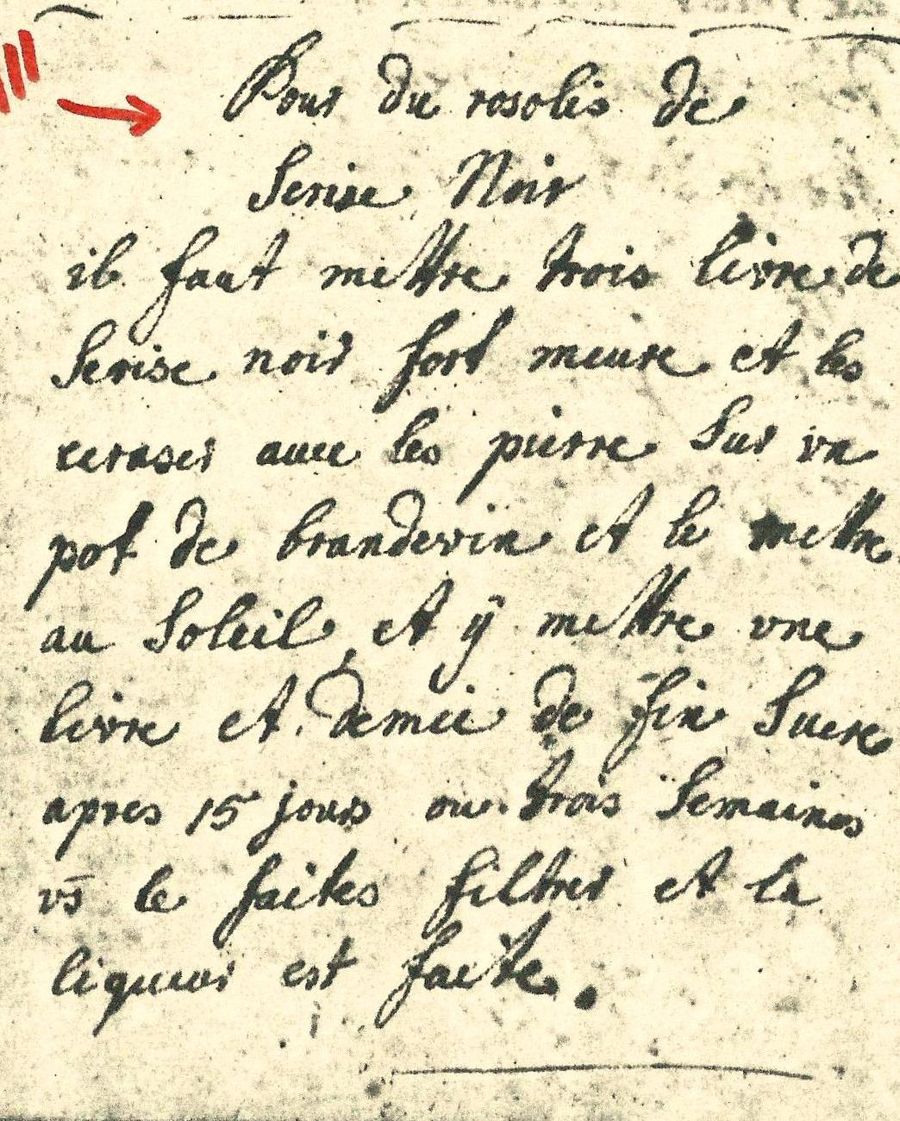 Pour du rosolis de
Serise Noir
il faut mettre trois livre de
Serise noir fort meure et les
ecraser avec les pierre Sur vn
pot de brandevin et le mettre
au Soleil, et ÿ mettre vne
livre et demie de fin Sucre
apres 15 jours ou trois Semaines
vs le faites filtrer et la
liqueur est faite.